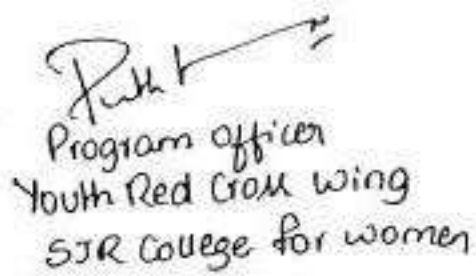 Program officer
Youth Red Cross wing
SJR College for women